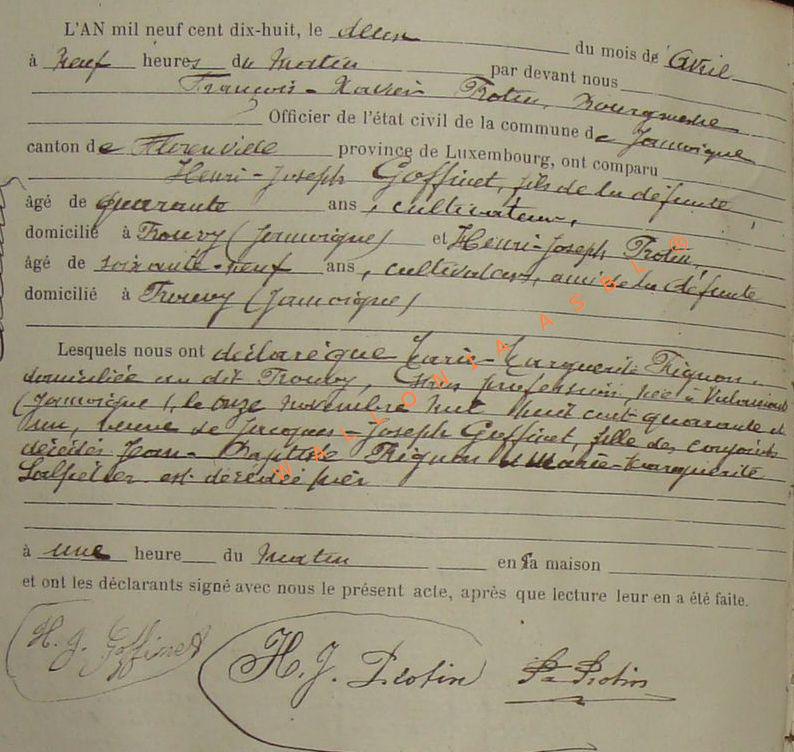 L'AN mil neuf cent dix-huit, le deux du mois de Avril
à neuf heures du matin par devant nous
François-Xavier Protin, Bourgmestre
Officier de l'état civil de la commune de Jamoigne
canton de Florenville province de Luxembourg, ont comparu
Henri-Joseph Goffinet, fils de la défunte
âgé de quarante ans, cultivateur,
domicilié à Prouvy (Jamoigne) et Henri-Joseph Protin,
âgé de soixante-neuf ans, cultivateur, ami de la défunte
domicilié à Prouvy (Jamoigne)
Lesquels nous ont déclaré que Marie-Marguerite Pignon
domiciliée au dit Prouvy, sans profession, née à
(Jamoigne), le onze novembre mil huit cent quarante et
un, veuve de Jacques-Joseph Goffinet, fille des conjoints
décédés Jean-Baptiste Pignon et Marie-Marguerite
est décédée hier
à une heure du matin en sa maison
et ont les déclarants signé avec nous le présent acte, après que lecture leur en a été faite.
H. J. Goffinet H. J. Protin Protin
WALLONIA ASBL ©